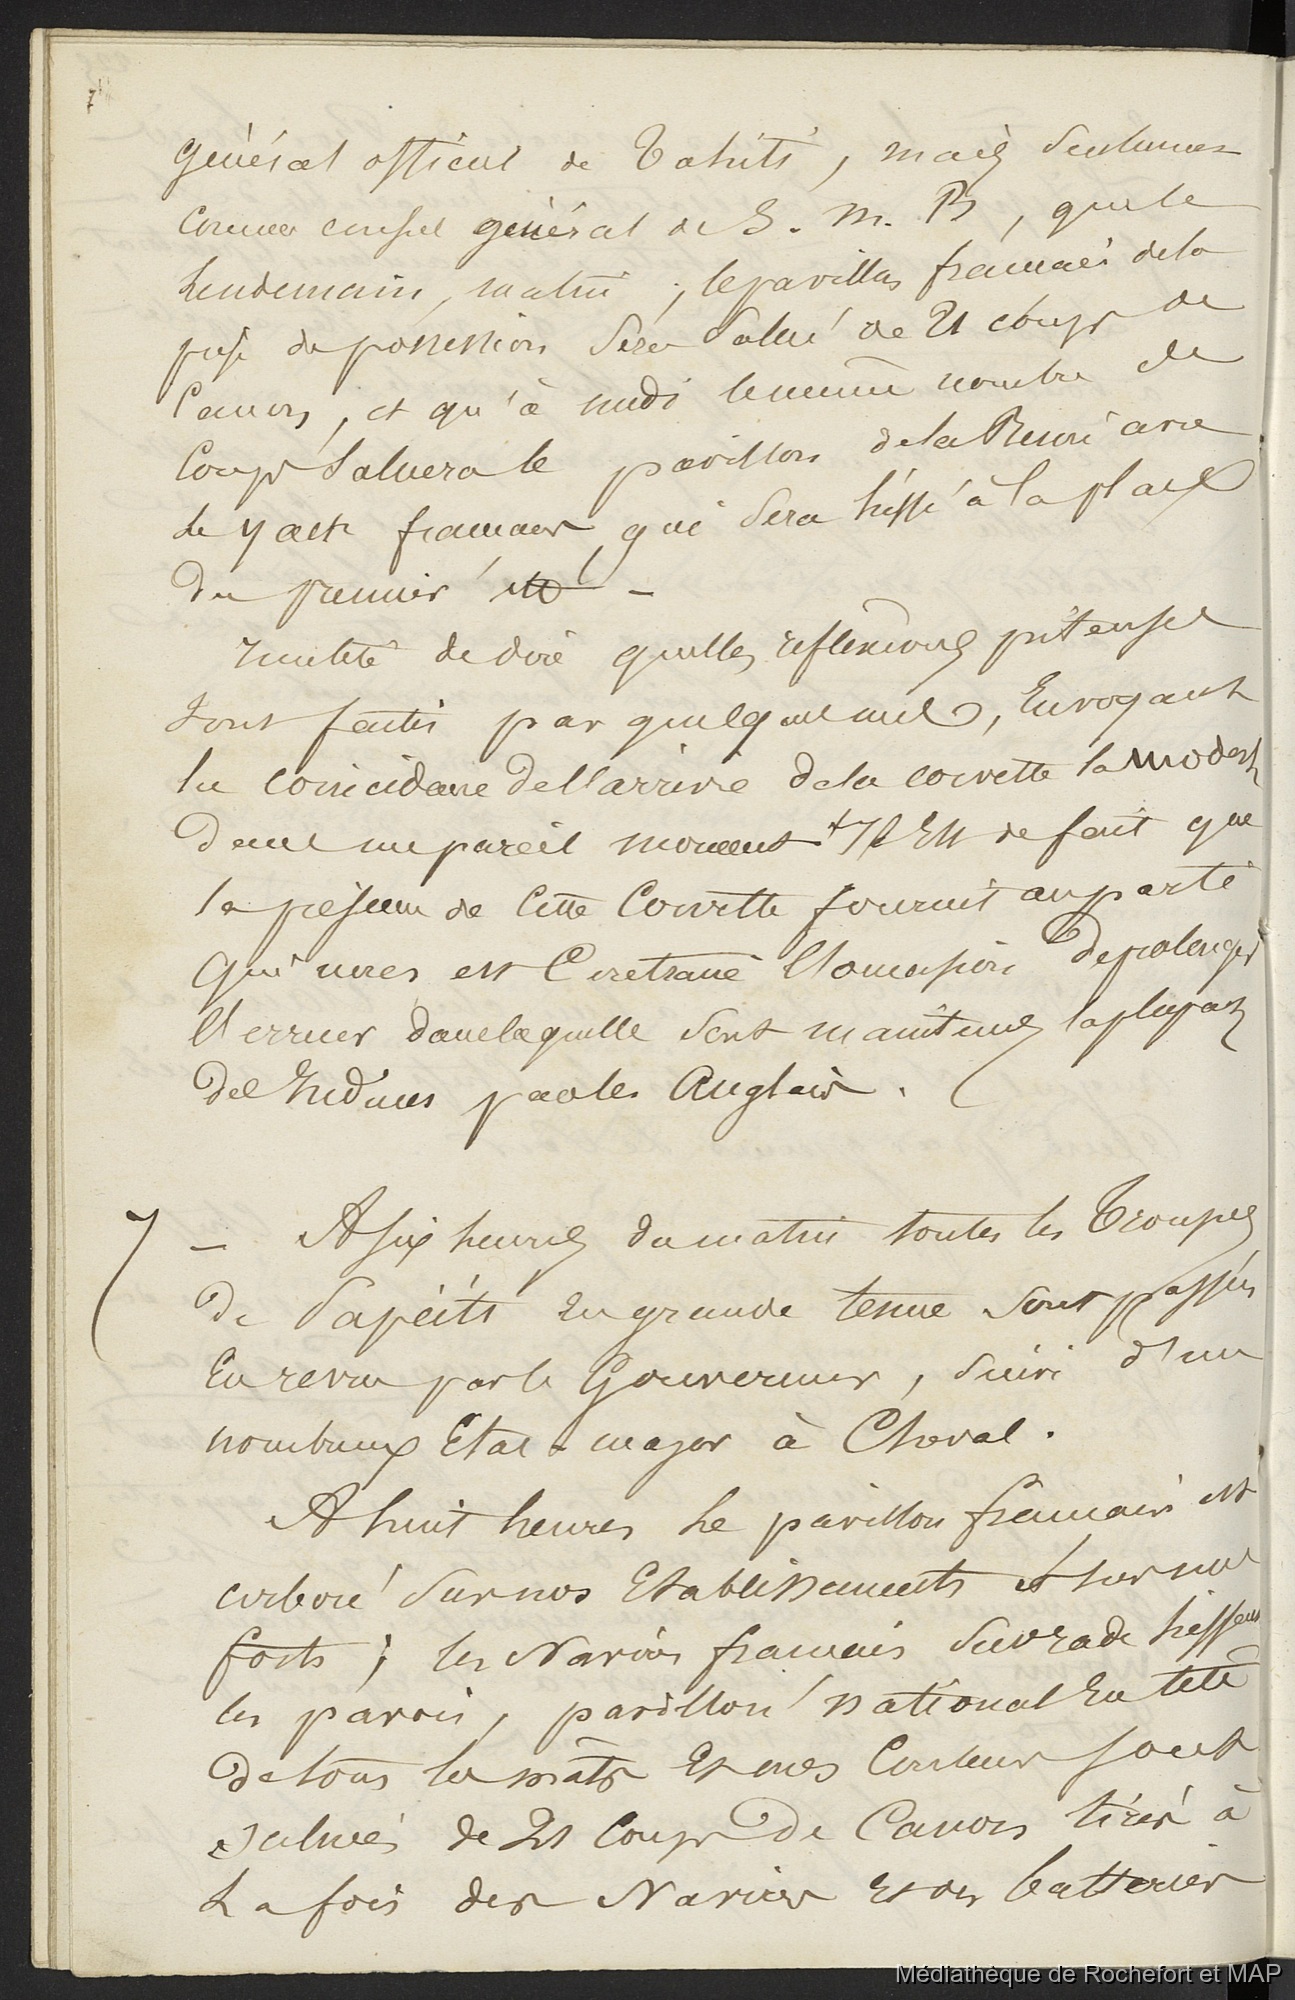 général officiel de Tahiti, mais seulement
comme consul général de S. M. B, que le
lendemain, matin, le pavillon français de la
prise de possession sera salué de 21 coups de
canon, et qu'à midi le même nombre de
coups saluera le pavillon de la Reine avec
le yack français, qui sera hissé à la place
du premier -
Inutile de dire quelles reflexions piteuses
sont faites par quelques uns, En voyant
la coincidence de l'arrivée de la corvette la modeste
dans un pareil moment Il Est de fait que
la présence de cette Corvette fournit au parti
qui nous est Contraire l'occasion de prolonger
l'erreur dans laquelle sont maintenus la plupart
des Indiens par les Anglais.
7 - A six heures du matin toutes les Troupes
de Papéiti en grande tenue sont passées
En revue par le Gouverneur, suivi d'un
nombreux Etat-major à Cheval.
A huit heures le pavillon français est
arboré sur nos Etablissements et sur nos
forts; les Navires français sur rade hissent
les pavois, pavillon national En tête
de tous les mâts Et nos Couleurs sont
saluées de 21 Coups de Canon tirés à
La fois des Navires et des batteries
Médiathèque de Rochefort et MAP